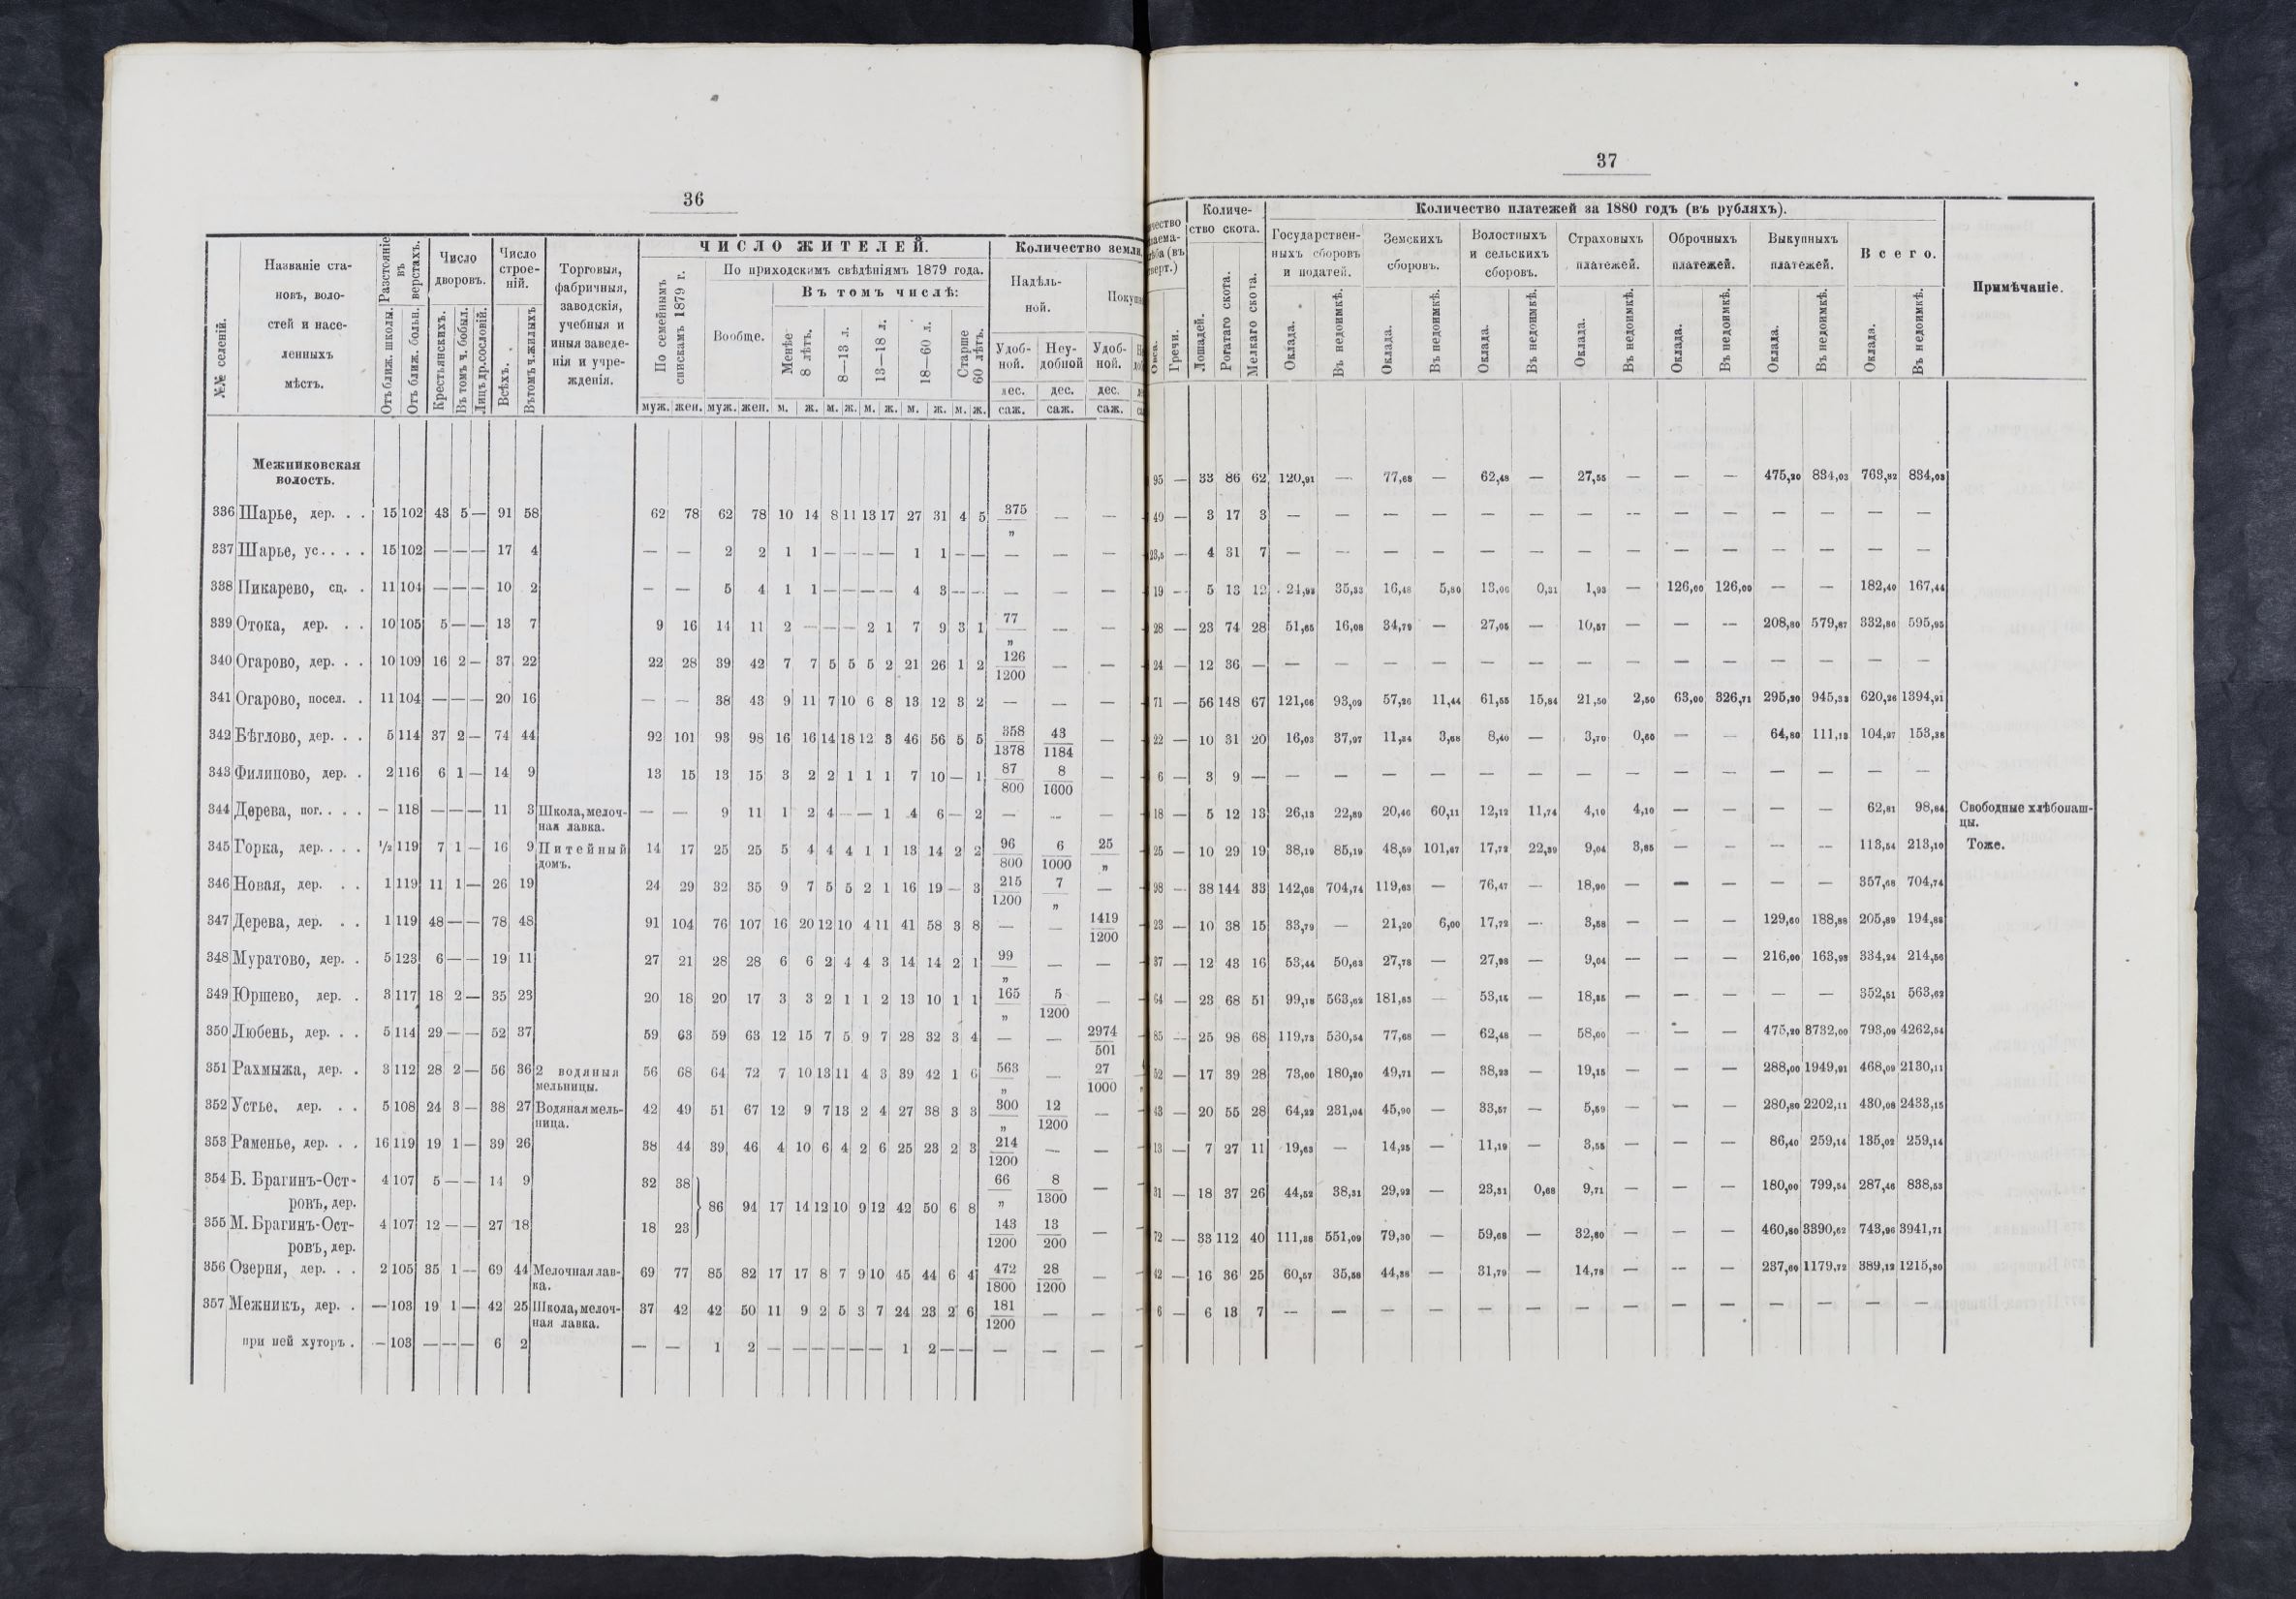 36
№№ селеній.
Названіе ста-
новъ, воло-
стей и насе-
ленныхъ
мѣстъ.
Разстояніе
въ
верстахъ.
Отъ ближ. школы.
Отъ ближ. больн.
Число
дворовъ.
Крестьянскихъ.
Въ томъ ч. бобыл.
Лицъ др. сословій.
Число
строе-
ній.
Всѣхъ.
Въ томъ ч. жилыхъ
Торговыя,
фабричныя,
заводскія,
учебныя и
иныя заведе-
нія и учре-
жденія.
ЧИСЛО ЖИТЕЛЕЙ.
По семейнымъ
спискамъ 1879 г.
По приходскимъ свѣдѣніямъ 1879 года.
Вообще.
Въ томъ числѣ:
Менѣе
8 лѣтъ.
8—13 л.
13—18 л.
18—60 л.
Старше
60 лѣтъ.
муж. жен. муж. жен. м. ж. м. ж. м. ж. м. ж. м. ж.
Количество земли
Надѣль-
ной.
Удоб-
ной.
Неу-
добной
Удоб-
ной.
дес. дес. дес.
саж. саж. саж.
Межниковская
волость.
336 Шарье, дер. . . 15 102 43 5 — 91 58 62 78 62 78 10 14 8 11 13 17 27 31 4 5 375/„ — —
337 Шарье, ус. . . . 15 102 — — — 17 4 — — 2 2 1 1 — — — — 1 1 — — — — —
338 Пикарево, сц. . 11 104 — — — 10 2 — — 5 4 1 1 — — — — 4 3 — — — — —
339 Отока, дер. . . 10 105 5 — — 13 7 9 16 14 11 2 — — — 2 1 7 9 3 1 77/„ — —
340 Огарово, дер. . . 10 109 16 2 — 37 22 22 28 39 42 7 7 5 5 5 2 21 26 1 2 126/1200 — —
341 Огарово, посел. . 11 104 — — — 20 16 — — 38 43 9 11 7 10 6 8 13 12 3 2 — — —
342 Бѣглово, дер. . . 5 114 37 2 — 74 44 92 101 93 98 16 16 14 18 12 3 46 56 5 5 358/1378 43/1184 —
343 Филипово, дер. . 2 116 6 1 — 14 9 13 15 13 15 3 2 2 1 1 1 7 10 — 1 87/800 8/1600 —
344 Дерева, пог. . . . — 118 — — — 11 3 Школа, мелоч- — — 9 11 1 2 4 — — 1 4 6 — 2 — — —
ная лавка.
345 Горка, дер. . . . ½ 119 7 1 — 16 9 Питейный 14 17 25 25 5 4 4 4 1 1 13 14 2 2 96/800 6/1000 25/„
домъ.
346 Новая, дер. . . 1 119 11 1 — 26 19 24 29 32 35 9 7 5 5 2 1 16 19 — 3 215/1200 7/„ —
347 Дерева, дер. . . 1 119 48 — — 78 48 91 104 76 107 16 20 12 10 4 11 41 58 3 8 — — 1419/1200
348 Муратово, дер. . 5 123 6 — — 19 11 27 21 28 28 6 6 2 4 4 3 14 14 2 1 99/„ — —
349 Юршево, дер. . 3 117 18 2 — 35 23 20 18 20 17 3 3 2 1 1 2 13 10 1 1 165/„ 5/1200 —
350 Любень, дер. . . 5 114 29 — — 52 37 59 63 59 63 12 15 7 5 9 7 28 32 3 4 — — 2974/501
351 Рахмыжа, дер. . 3 112 28 2 — 56 36 2 водяныя 56 68 64 72 7 10 13 11 4 3 39 42 1 6 563/„ — 27/1000
мельницы.
352 Устье, дер. . . 5 108 24 3 — 38 27 Водяная мель- 42 49 51 67 12 9 7 13 2 4 27 38 3 3 300/„ 12/1200 —
ница.
353 Раменье, дер. . . 16 119 19 1 — 39 26 38 44 39 46 4 10 6 4 2 6 25 23 2 3 214/1200 — —
354 Б. Брагинъ-Ост- 4 107 5 — — 14 9 32 38 66/„ 8/1300 —
ровъ, дер. 86 94 17 14 12 10 9 12 42 50 6 8
355 М. Брагинъ-Ост- 4 107 12 — — 27 18 18 23 143/1200 13/200 —
ровъ, дер.
356 Озерня, дер. . . 2 105 35 1 — 69 44 Мелочная лав- 69 77 85 82 17 17 8 7 9 10 45 44 6 4 472/1800 28/1200 —
ка.
357 Межникъ, дер. . — 103 19 1 — 42 25 Школа, мелоч- 37 42 42 50 11 9 2 5 3 7 24 23 2 6 181/1200 — —
ная лавка.
при ней хуторъ . — 103 — — — 6 2 — — 1 2 — — — — — — 1 2 — — — — —
37
Гречи.
Количе-
ство скота.
Лошадей.
Рогатаго скота.
Мелкаго скота.
Количество платежей за 1880 годъ (въ рубляхъ).
Государствен-
ныхъ сборовъ
и податей.
Земскихъ
сборовъ.
Волостныхъ
и сельскихъ
сборовъ.
Страховыхъ
платежей.
Оброчныхъ
платежей.
Выкупныхъ
платежей.
Всего.
Оклада. Въ недоимкѣ. Оклада. Въ недоимкѣ. Оклада. Въ недоимкѣ. Оклада. Въ недоимкѣ. Оклада. Въ недоимкѣ. Оклада. Въ недоимкѣ. Оклада. Въ недоимкѣ.
Примѣчаніе.
95 — 33 86 62 120,91 — 77,68 — 62,48 — 27,55 — — — 475,20 834,03 763,82 834,03
49 — 3 17 3 — — — — — — — — — — — — — —
23,5 — 4 31 7 — — — — — — — — — — — — — —
19 — 5 13 12 24,98 35,33 16,48 5,80 13,00 0,31 1,93 — 126,00 126,00 — — 182,40 167,44
28 — 23 74 28 51,65 16,08 34,79 — 27,05 — 10,57 — — — 208,80 579,87 332,86 595,95
24 — 12 36 — — — — — — — — — — — — — — —
71 — 56 148 67 121,66 93,09 57,26 11,44 61,55 15,84 21,50 2,50 63,00 326,71 295,20 945,33 620,26 1394,91
22 — 10 31 20 16,03 37,97 11,34 3,68 8,40 — 3,70 0,60 — — 64,80 111,13 104,27 153,38
6 — 3 9 — — — — — — — — — — — — — — —
18 — 5 12 13 26,13 22,89 20,46 60,11 12,12 11,74 4,10 4,10 — — — — 62,81 98,84 Свободные хлѣбопаш-
цы.
25 — 10 29 19 38,19 85,19 48,59 101,67 17,72 22,39 9,04 3,85 — — — — 113,54 213,10 Тоже.
98 — 38 144 33 142,68 704,74 119,63 — 76,47 — 18,90 — — — — — 357,68 704,74
23 — 10 38 15 33,79 — 21,20 6,00 17,72 — 3,58 — — — 129,60 188,88 205,89 194,88
37 — 12 43 16 53,44 50,63 27,78 — 27,98 — 9,04 — — — 216,00 163,93 334,24 214,56
64 — 23 68 51 99,18 563,62 181,85 — 53,14 — 18,35 — — — — — 352,51 563,62
85 — 25 98 68 119,73 530,54 77,68 — 62,48 — 58,00 — — — 475,20 3732,00 793,09 4262,54
52 — 17 39 28 73,00 180,20 49,71 — 38,23 — 19,15 — — — 288,00 1949,91 468,09 2130,11
43 — 20 55 28 64,22 231,04 45,90 — 33,57 — 5,59 — — — 280,80 2202,11 430,08 2433,15
13 — 7 27 11 19,63 — 14,25 — 11,19 — 3,55 — — — 86,40 259,14 135,02 259,14
31 — 18 37 26 44,52 38,31 29,92 — 23,31 0,68 9,71 — — — 180,00 799,54 287,46 838,53
72 — 33 112 40 111,38 551,09 79,30 — 59,68 — 32,80 — — — 460,80 3390,62 743,96 3941,71
42 — 16 36 25 60,57 35,58 44,38 — 31,79 — 14,78 — — — 237,60 1179,72 389,12 1215,30
6 — 6 13 7 — — — — — — — — — — — — — —